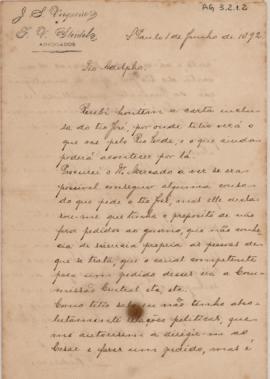 AG 3.2.1.2
J. S.
ADVOGADOS
S. Paulo 1 de Junho de 1892
Tio Adolpho.
Recebi hontem a carta inclusa
do tio José, por onde titio verá o
que vae pelo Rio Verde, e o que ainda
poderá acontecer por lá.
Procurei o Dr. Mercado a ver se era
possivel conseguir alguma cousa
do que pede o tio José, mas elle declarou-me
que tinha o proposito de não
fazer pedidos ao governo, que não conhecia
de sciencia propria as pessoas de
que se trata, que o canal competente
para um pedido desses era a Commissão
Central etc, etc.
Como titio sabe eu não tenho absolutamente
relações politicas, que
me autorisem a dirigir-me ao
e fazer um pedido, mas é